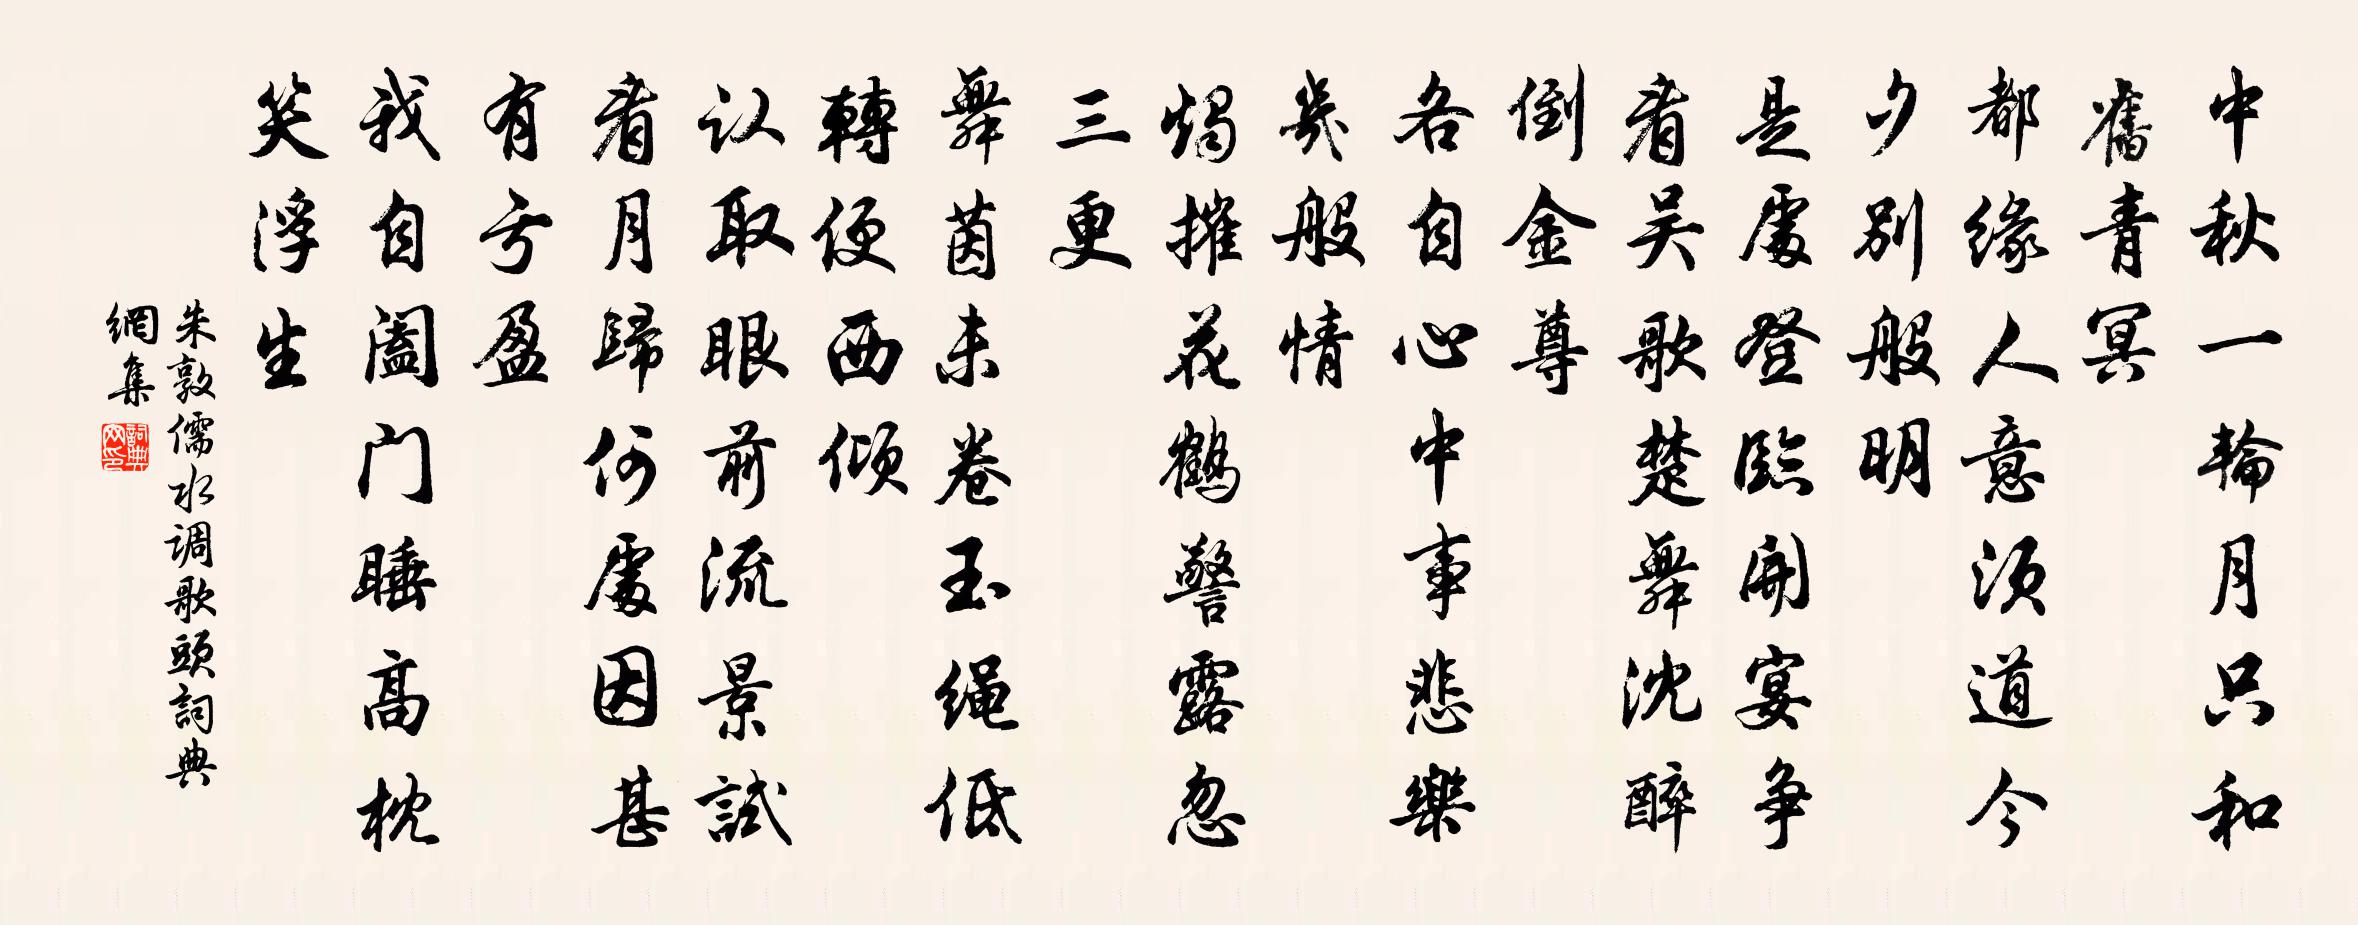 中秋一輪月只和
舊青冥
都緣人意須道今
夕別般明
是處登臨開宴爭
看吴歌楚舞沈醉
倒金尊
各自心中事悲樂
幾般情
燭摧花鶴警露忽
三更
舞茵未卷玉绳低
轉便西傾
认取眼前流景試
看月歸何處因甚
有亏盈
我自阖门睡高枕
笑浮生
朱敦儒水调歌頭詞典
網集
詞典
网印